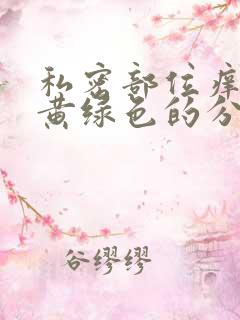 私密部位痒
黄绿色的分
谷缪缪